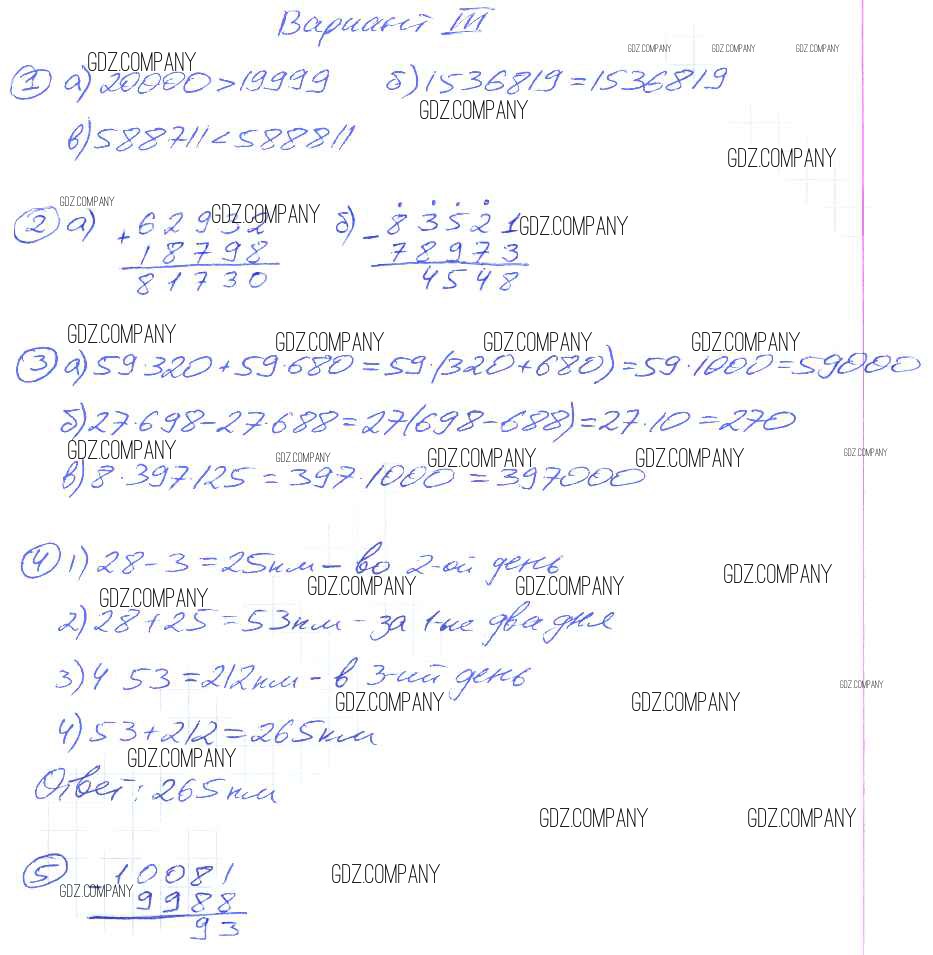 Вариант III
GDZ.COMPANY GDZ.COMPANY GDZ.COMPANY GDZ.COMPANY
1 а) 20000 > 19999 б) 1536819 = 1536819
GDZ.COMPANY
в) 588711 < 588811
GDZ.COMPANY
GDZ.COMPANY GDZ.COMPANY GDZ.COMPANY
2 а) + 62932 б) - 83521
18798 78973
81730 4548
GDZ.COMPANY GDZ.COMPANY GDZ.COMPANY GDZ.COMPANY
3 а) 59·320+59·680=59·(320+680)=59·1000=59000
б) 27·698-27·688=27(698-688)=27·10=270
GDZ.COMPANY GDZ.COMPANY GDZ.COMPANY GDZ.COMPANY GDZ.COMPANY
в) 8·397·125=397·1000=397000
4 1) 28-3=25км - во 2-ой день
GDZ.COMPANY GDZ.COMPANY GDZ.COMPANY GDZ.COMPANY
2) 28+25=53км - за 1-ые два дня
3) 4 53=212км - в 3-ий день
GDZ.COMPANY GDZ.COMPANY GDZ.COMPANY
4) 53+212=265км
GDZ.COMPANY
Ответ: 265км
GDZ.COMPANY GDZ.COMPANY
5 - 10081
GDZ.COMPANY GDZ.COMPANY
9988
93